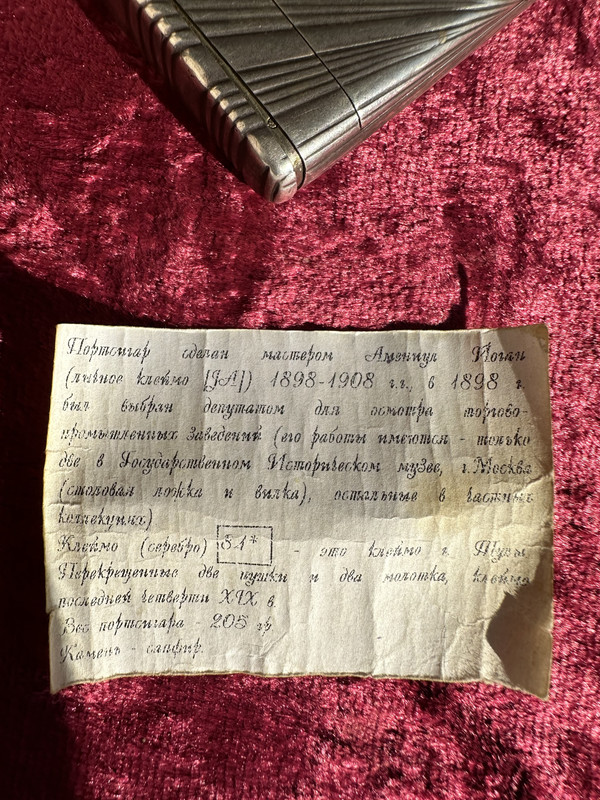 Портсигар сделан мастером Амениул Иоган
(личное клеймо [JA]) 1898-1908 г.г., в 1898 г
был выбран депутатом для осмотра торгово-
промышленных заведений (его работы имеются - только
две в Государственном Историческом музее, г. Москва
(столовая ложка и вилка), остальные в частных
коллекциях)
Клеймо (серебро) - это клеймо г. Тулы.
Перекрещенные две пушки и два молотка, клейма
последней четверти XIX в.
Вес портсигара - 205 гр.
Камень - сапфир.